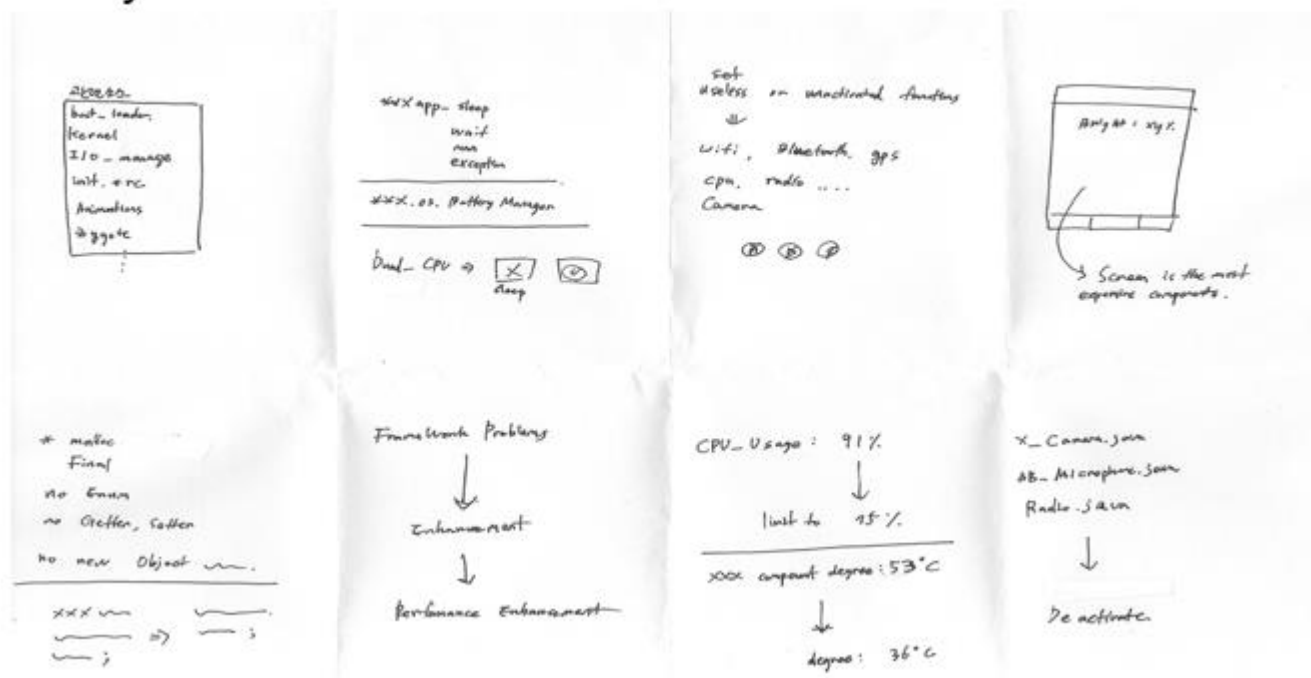 boot_loader
Kernel
I/O_manage
init.rc
Animations
Zygote
xxx app_ sleep
wait
run
exception
xxx.os. Battery Manager
Dual_ CPU ⇒ X
sleep
set
useless or unactivated functions
wifi, Bluetooth, gps
cpu, radio ....
Camera
: xy%
Screen is the most
expensive components.
* malloc
Final
no Enum
no Getter, Setter
no new Object
xxx
⇒ ;
;
Framework Problems
Enhancement
Performance Enhancement
CPU_Usage : 91%
limit to 15%
xxx component degree : 53°C
degree : 36°C
X_Camera.java
AB_Microphone.java
Radio.java
Deactivate.